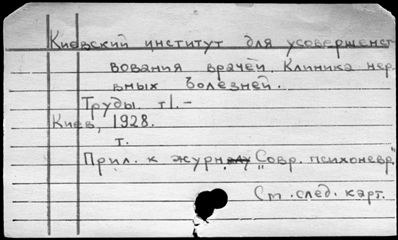 Киевский институт для усовершенст
вования врачей. Клиника нер-
вных болезней.
Труды. т1.-
Киев, 1928.
т.
Прил. к журн. "Совр. психоневр."
См. след. карт.